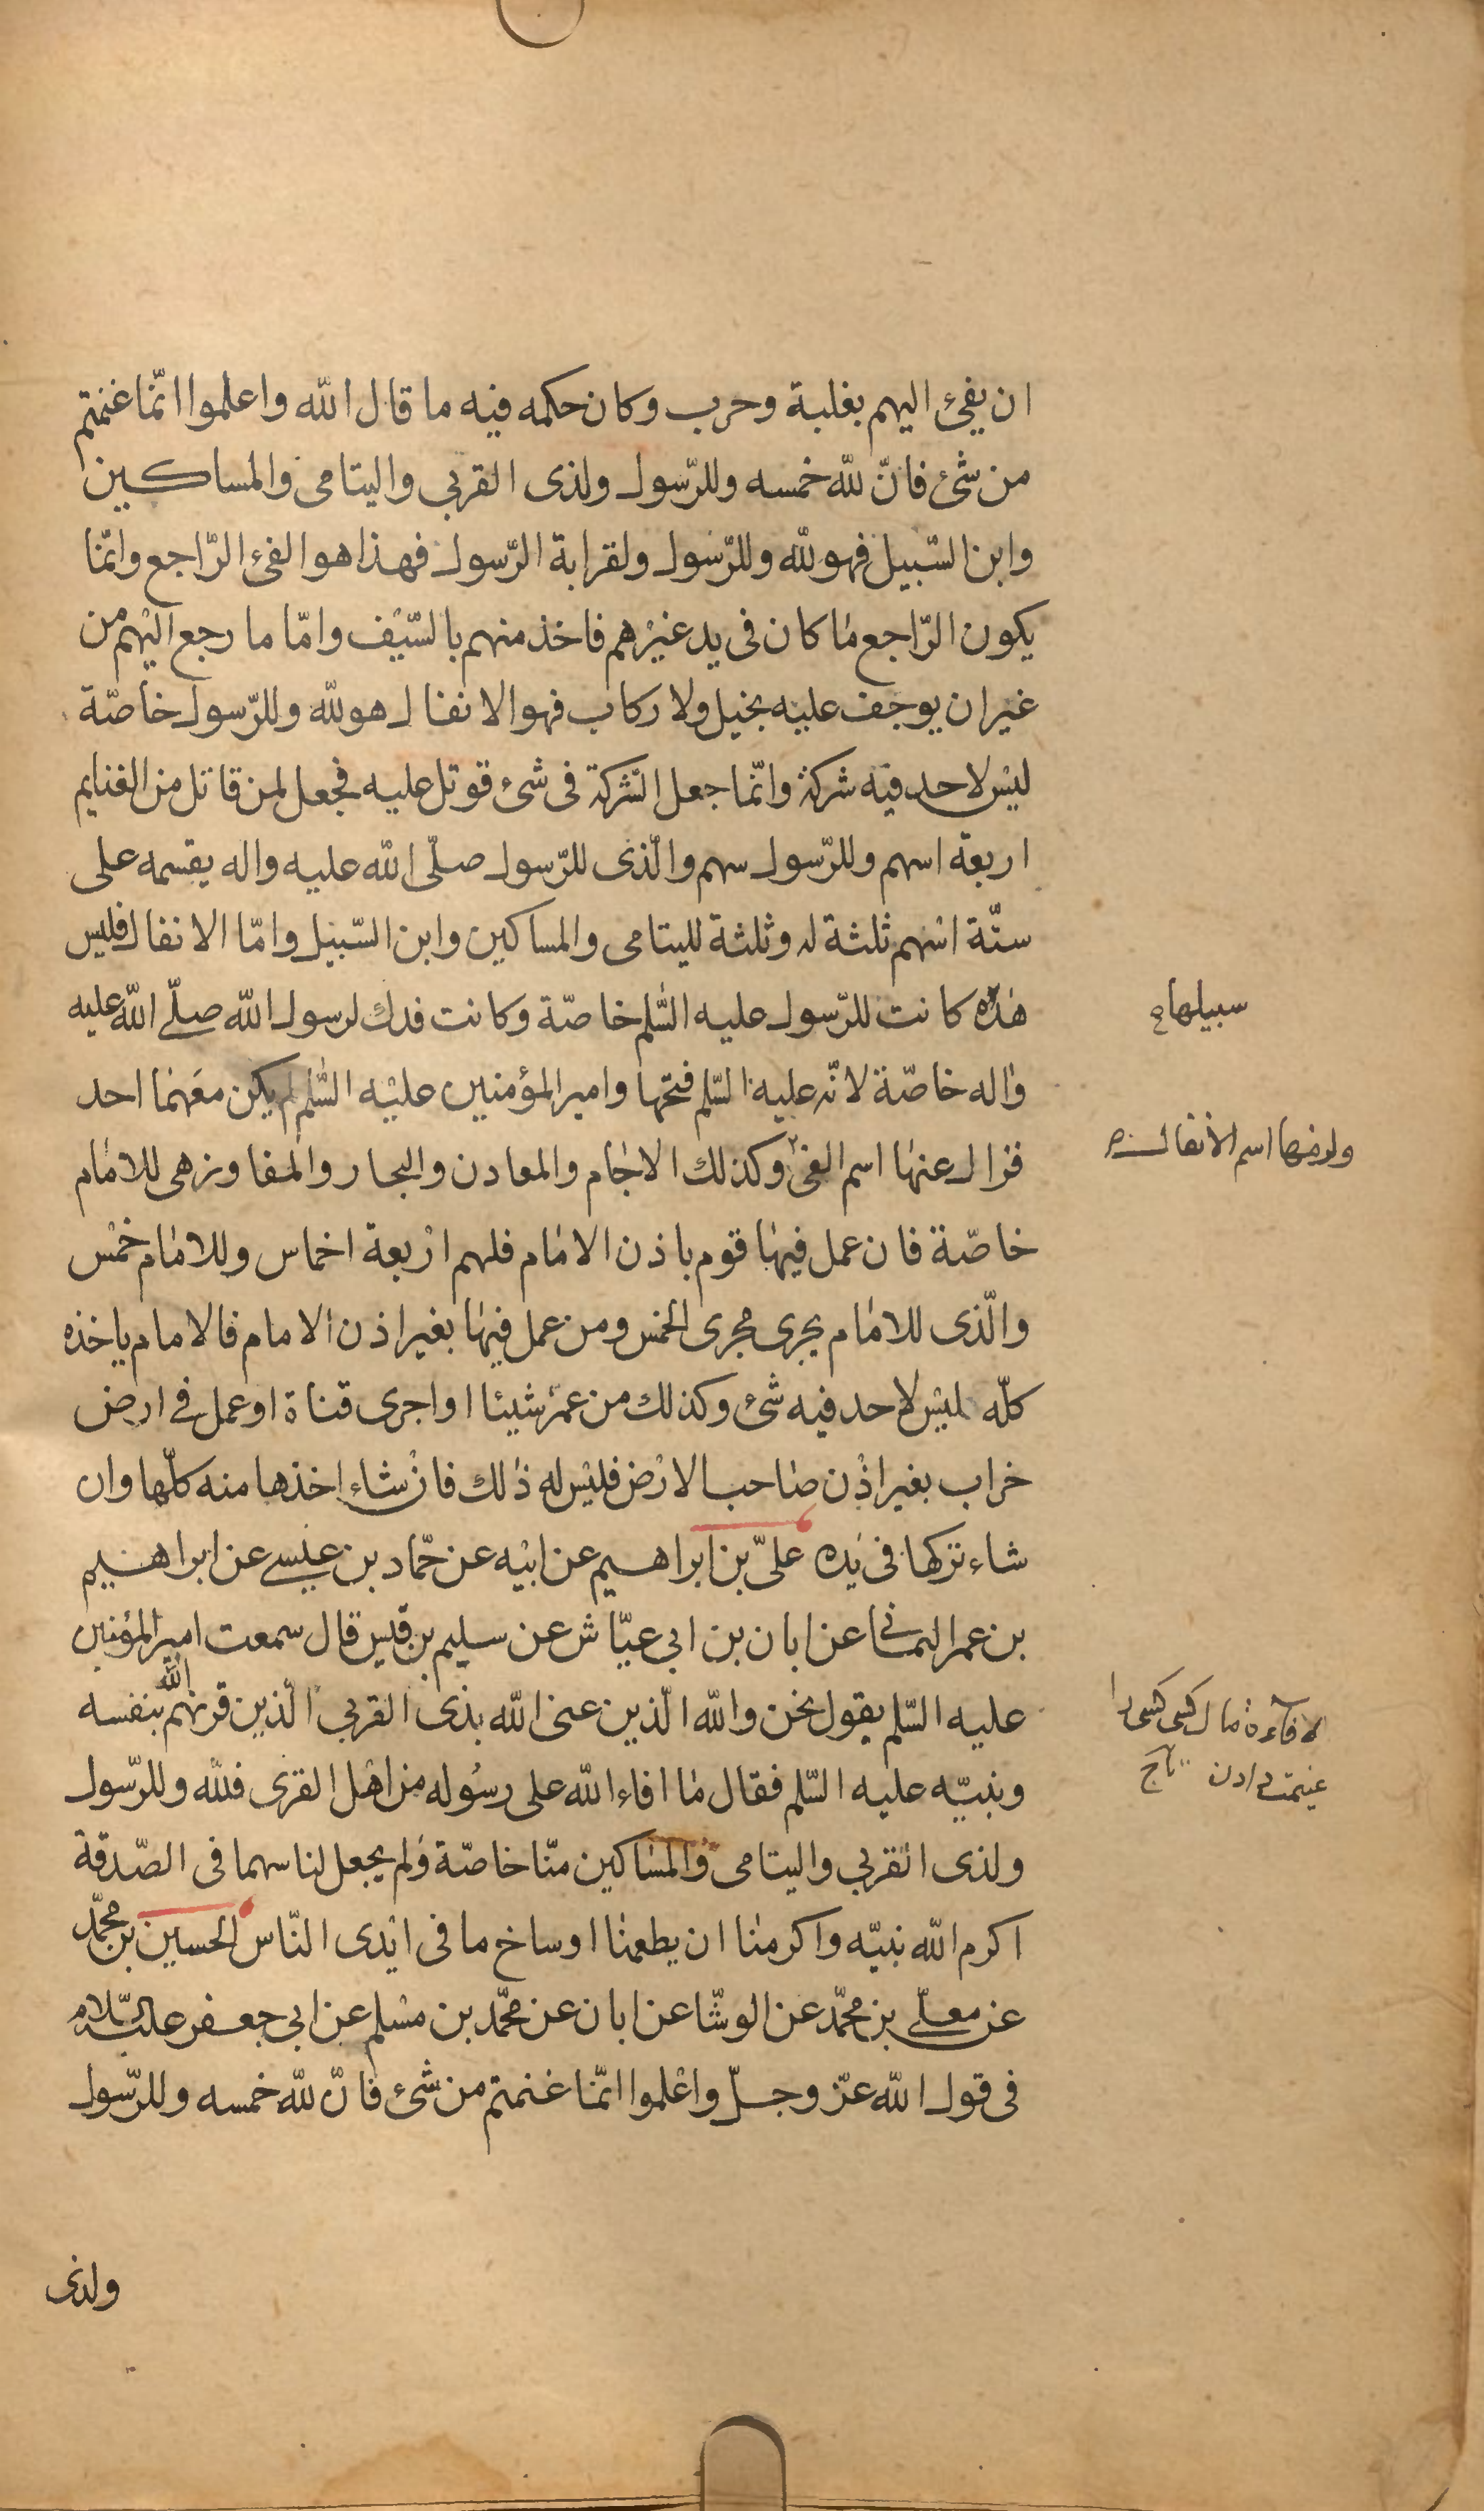 ان يفئ اليهم بغلبة وحرب وكان حكمه فيه ما قال الله واعلموا انّما غنمتم
من شئ فانّ لله خمسه وللرّسول ولذى القربى واليتامى والمساكين
وابن السّبيل فهو لله وللرّسول ولقرابة الرّسول فهذا هو الفئ الرّاجع وانّما
يكون الرّاجع ما كان فى يد غيرهم فاخذ منهم بالسّيف وامّا ما رجع اليهم من
غير ان يوجف عليه بخيل ولا ركاب فهو الانفال هو لله وللرّسول خاصّة
ليس لاحد فيه شركة وانّما جعل الشّركة فى شئ قوتل عليه فجعل لمن قاتل من الغنايم
اربعة اسهم وللرّسول سهم والّذى للرّسول صلّى الله عليه واله يقسمه على
ستّة اسهم ثلثة له وثلثة لليتامى والمساكين وابن السّبيل وامّا الانفال فليس
هذه كانت للرّسول عليه السّلم خاصّة وكانت فدك لرسول الله صلّى الله عليه
سبيلها
واله خاصّة لانّه عليه السّلم فتحها وامير المؤمنين عليه السّلم لم يكن معهما احد
فزال عنها اسم الفئ وكذلك الاجام والمعادن والبحار والمفاوز هى للامام
ولزمها اسم الانفال
خاصّة فان عمل فيها قوم باذن الامام فلهم اربعة اخماس وللامام خمس
والّذى للامام يجرى مجرى الخمس ومن عمل فيها بغير اذن الامام فالامام ياخذه
كلّه ليس لاحد فيه شئ وكذلك من عمّر شيئا او اجرى قناة او عمل فى ارض
خراب بغير اذن صاحب الارض فليس له ذلك فان شاء اخذها منه كلّها وان
شاء تركها فى يده علىّ بن ابراهيم عن ابيه عن حمّاد بن عيسى عن ابراهيم
بن عمر اليمانى عن ابان بن ابى عيّاش عن سليم بن قيس قال سمعت امير المؤمنين
عليه السّلم يقول نحن والله الّذين عنى الله بذى القربى الّذين قرنهم الله بنفسه
مال كسى كسى را
ونبيّه عليه السّلم فقال ما افاء الله على رسوله من اهل القرى فلله وللرّسول
غنيمت دادن تاج
ولذى القربى واليتامى والمساكين منّا خاصّة ولم يجعل لنا سهما فى الصّدقة
اكرم الله نبيّه واكرمنا ان يطعمنا اوساخ ما فى ايدى النّاس الحسين بن محمّد
عن معلّى بن محمّد عن الوشّا عن ابان عن محمّد بن مسلم عن ابى جعفر عليه السّلام
فى قول الله عزّ وجلّ واعلموا انّما غنمتم من شئ فانّ لله خمسه وللرّسول
ولذى